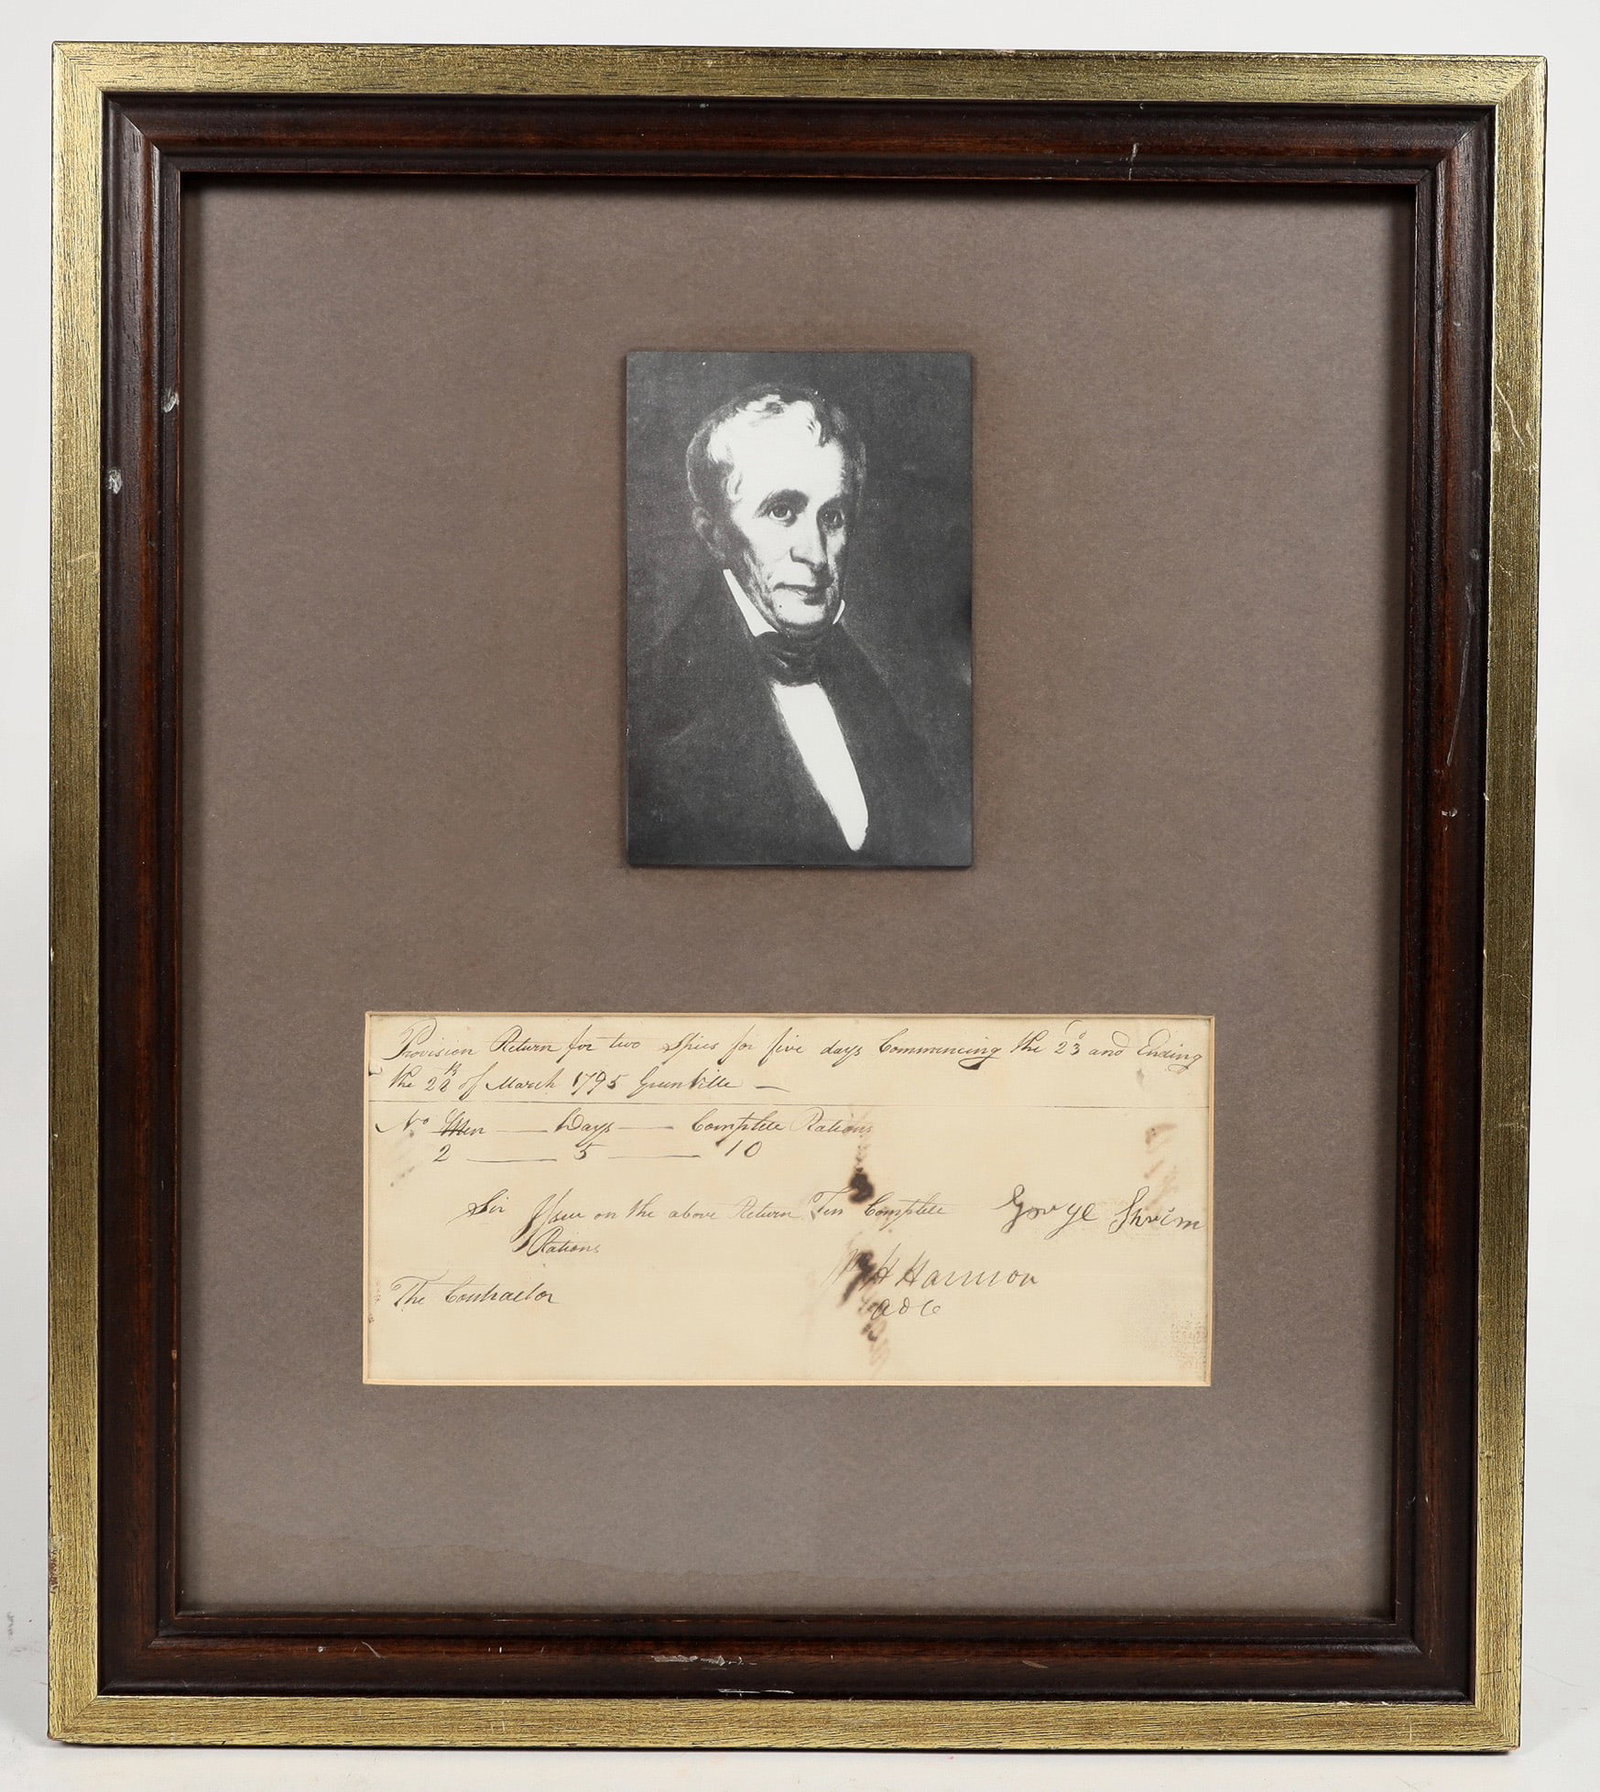 Provision Return for two Spies for five days Commencing the 23d and Ending
the 28th of March 1795 Greenville —
No Men — Days — Complete Rations
2 — 5 — 10
Sir Issue on the above Return Ten Complete
Rations
George Shrim
The Contractor
Wm H Harrison
ADC